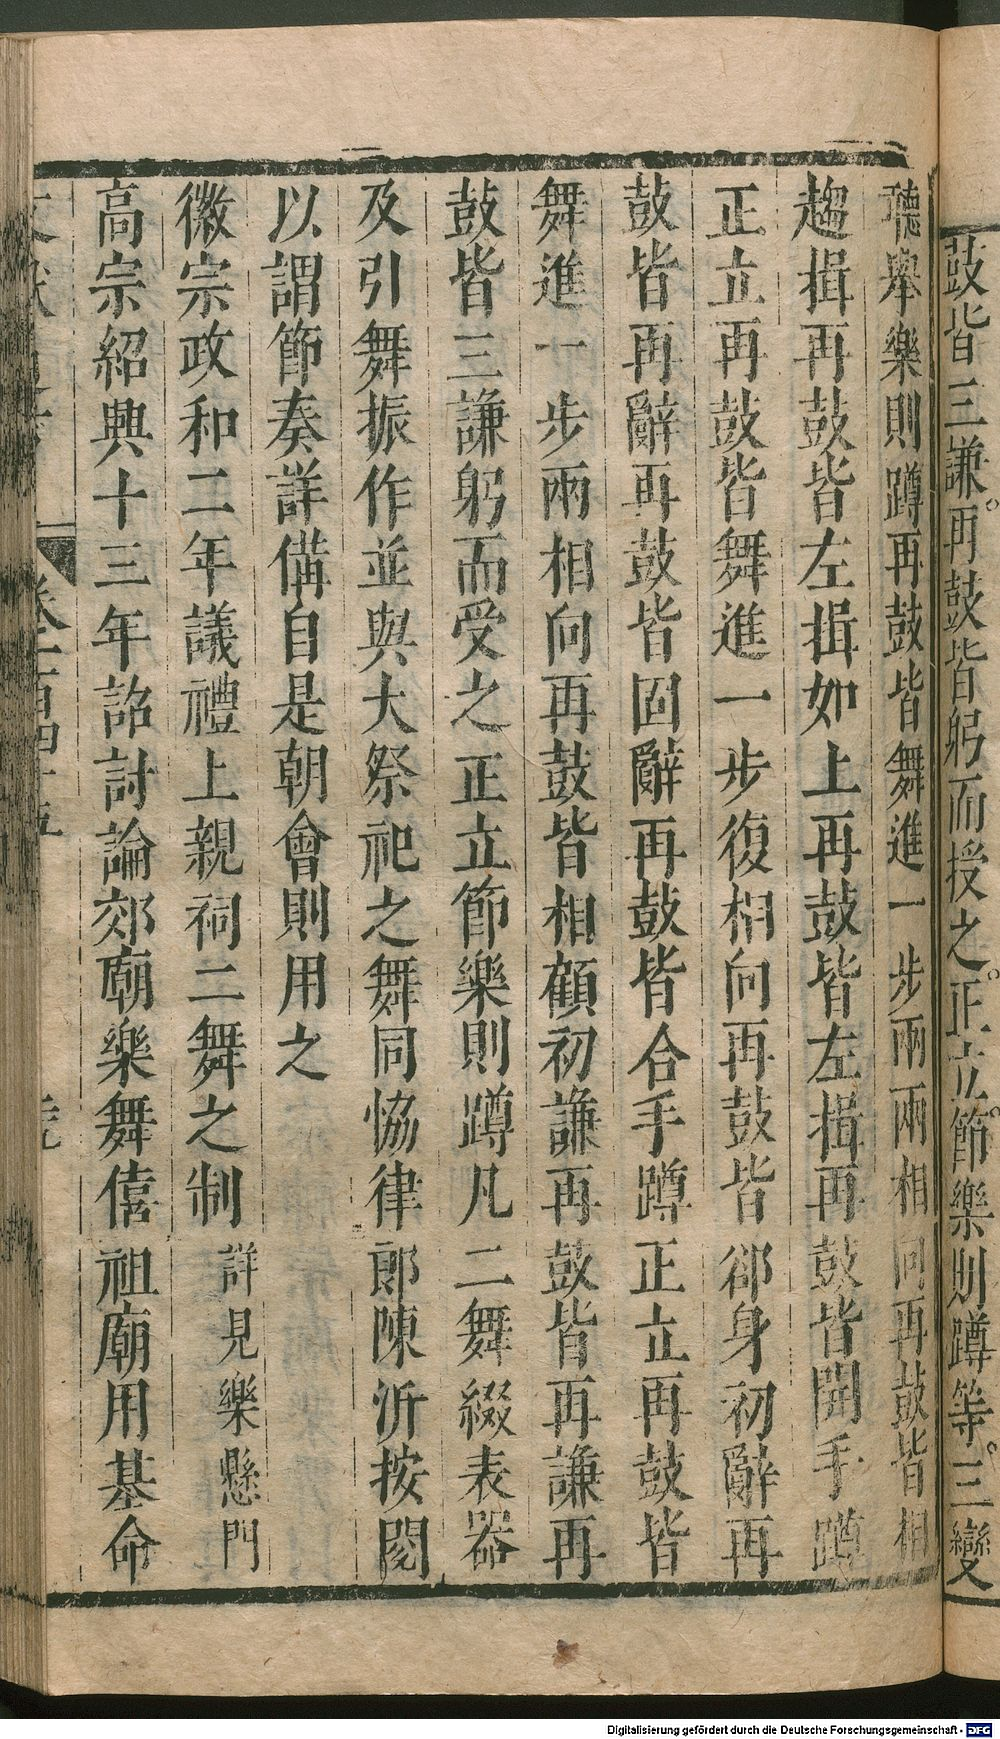 鼓皆三謙再鼓皆躬而授之正立節樂則蹲等三變
聽舉樂則蹲再鼓皆舞進一步兩兩相向再鼓皆相
趨揖再鼓皆左揖如上再鼓皆左揖再鼓皆開手蹲
正立再鼓皆舞進一步復相向再鼓皆郤身初辭再
鼓皆再辭再鼓皆固辭再鼓皆合手蹲正立再鼓皆
舞進一步兩相向再鼓皆相顧初謙再鼓皆再謙再
鼓皆三謙躬而受之正立節樂則蹲凡二舞綴表器
及引舞振作並與大祭祀之舞同恊律郎陳沂按閱
以謂節奏詳備自是朝會則用之
徽宗政和二年議禮上親祠二舞之制詳見樂懸門
高宗紹興十三年詔討論郊廟樂舞僖祖廟用基命
卷一百四十五
Digitalisierung gefördert durch die Deutsche Forschungsgemeinschaft - DFG